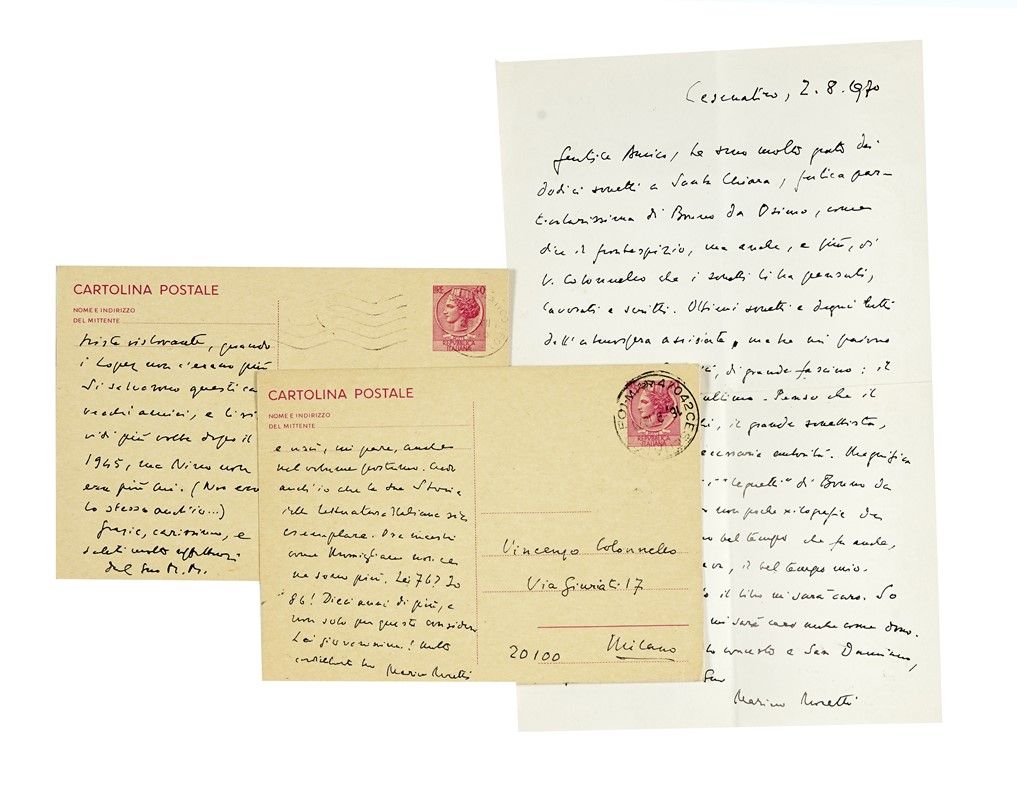 CARTOLINA POSTALE
NOME E INDIRIZZO
DEL MITTENTE
LIRE 40
REPUBBLICA
ITALIANA
triste ristorante, quando
i Lopez non c'erano più
Si salvarono questi ca
vecchi amici, e li ri
vidi più volte dopo il
1945, ma Nino non
era più lui. (Non ero
lo stesso anch'io...)
Grazie, carissimo, e
saluti molto affettuosi
dal Suo M. M.
CARTOLINA POSTALE
NOME E INDIRIZZO
DEL MITTENTE
REPUBBLICA
ITALIANA
e usai, mi pare, anche
nel volume postumo. Credo
anch'io che la sua Storia
della Letteratura Italiana sia
esemplare. Dei maestri
come Momigliano non ce
ne sono più. Lei 76? Io
86! Dieci anni di più, e
non solo per questo considero
Lei giovanissimo! Molto
cordialmente Suo Marino Moretti
Vincenzo Colonnello
Via Giuriati 17
20100 Milano
Cesenatico, 2.8.1970
Gentile Amico, Le sono molto grato dei
dodici sonetti a Santa Chiara, fatica par-
ticolarissima di Bruno da Osimo, come
dice il frontespizio, ma anche, e più, di
V. Colonnello che i sonetti li ha pensati,
lavorati e scritti. Ottimi sonetti e degni tutti
dell'atmosfera assisiate, ma tre mi paiono
di grande fascino: il
ultimo. Penso che il
il grande sonettista,
necessaria autorità. Magnifici
"legnetti" di Bruno da
non poche xilografie da
bel tempo che fu anche,
il bel tempo mio.
il libro mi sarà caro. So
mi sarà caro anche come dono.
concesso a San Damiano,
Suo
Marino Moretti